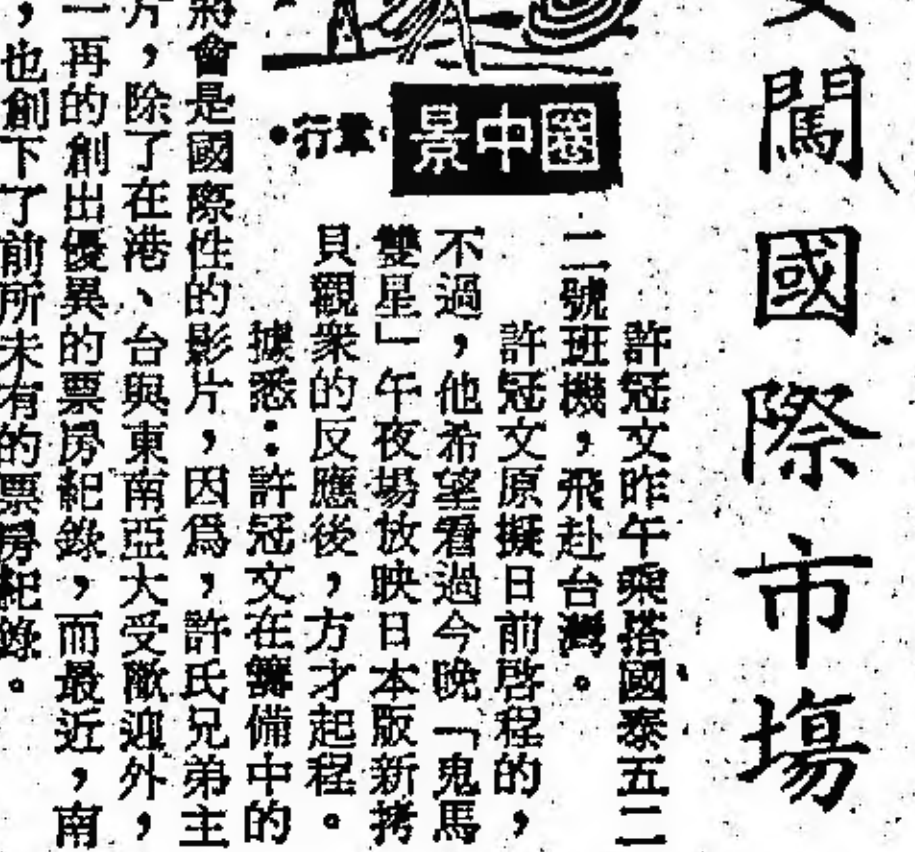 闖國際市塲
圈中景
許冠文昨午乘搭國泰五二
二號班機，飛赴台灣。
許冠文原擬日前啓程的，
不過，他希望看過今晚「鬼馬
雙星」午夜場放映日本版新拷
貝觀衆的反應後，方才起程。
據悉：許冠文在籌備中的
將會是國際性的影片，因爲，許氏兄弟主
片，除了在港、台與東南亞大受歡迎外，
一再的創出優異的票房紀錄，而最近，南
，也創下了前所未有的票房紀錄。